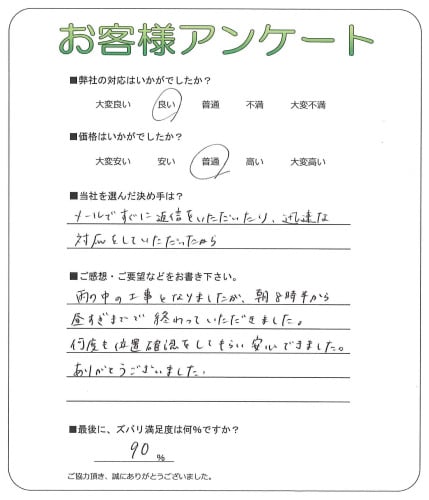 お客様アンケート
■弊社の対応はいかがでしたか？
大変良い 良い 普通 不満 大変不満
■価格はいかがでしたか？
大変安い 安い 普通 高い 大変高い
■当社を選んだ決め手は？
メールですぐに返信をいただいたり、迅速な
対応をしていただったから
■ご感想・ご要望などをお書き下さい。
雨の中の工事となりましたが、朝8時半から
昼すぎまでで終わっていただきました。
何度も位置確認をしてもらい安心できました。
ありがとうございました。
■最後に、ズバリ満足度は何％ですか？
90 %
ご協力頂き、誠にありがとうございました。